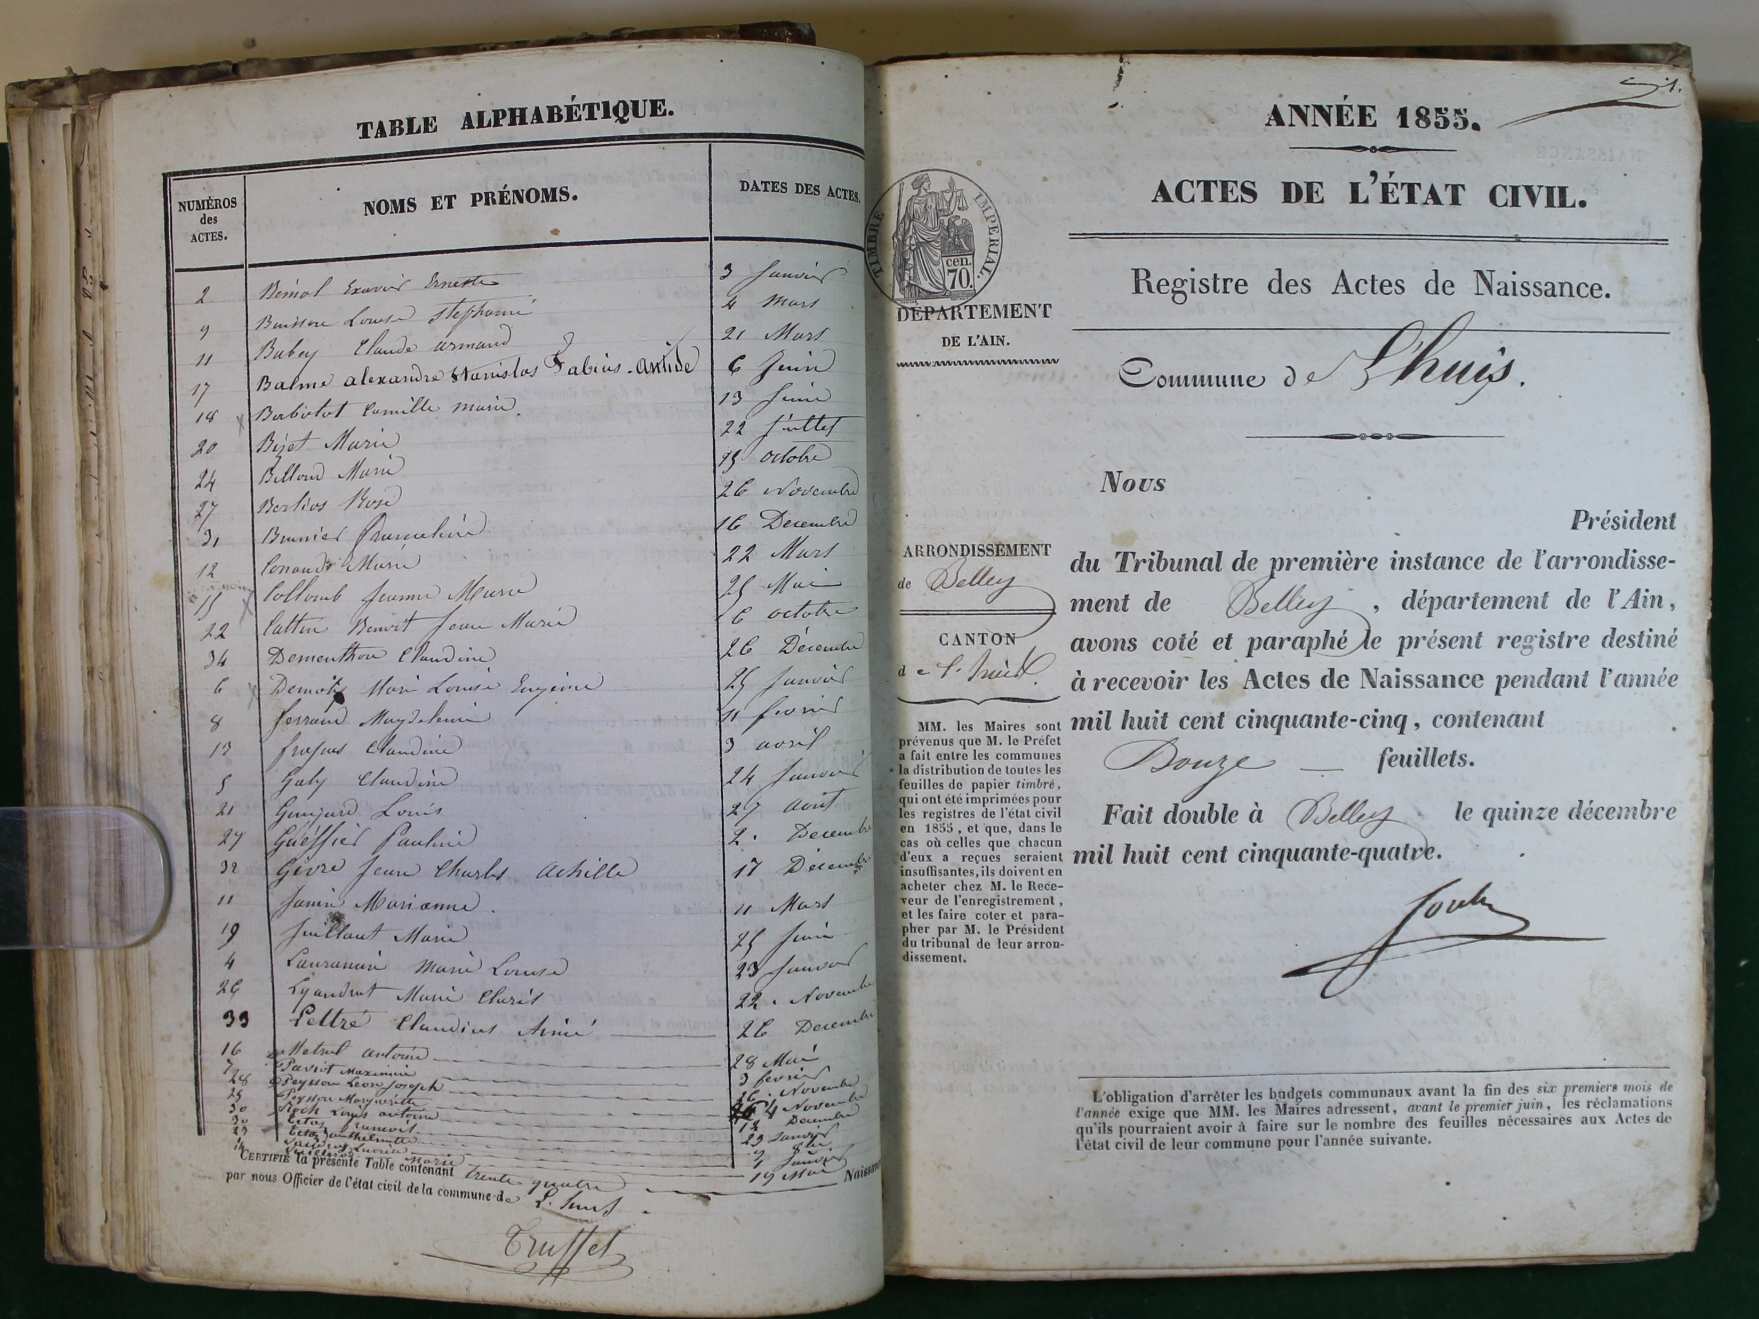 TABLE ALPHABÉTIQUE.
NUMÉROS des ACTES.
NOMS ET PRÉNOMS.
DATES DES ACTES.
2 Ernest 3 Janvier
9 Buisson Louise Stephanie 4 Mars
11 Babey Claude armand 21 Mars
17 Balme alexandre Stanislas Fabius-Antide 6 Juin
18 Babolat Camille marie. 13 Juin
20 Bizet Marie 22 Juillet
24 Billoud Marie 15 octobre
27 Berlioz Rose 26 Novembre
31 Brunier Franceline 16 Decembre
12 Marie 22 Mars
15 Collomb Jeanne Marie 25 Mai
22 Cattin Benoit Jean Marie 6 octobre
34 Dementhon Claudine 26 Décembre
6 Marie Louise Eugénie 25 Janvier
8 Ferrand Magdeleine 11 fevrier
13 Claudine 3 avril
5 Galy Claudine 24 Janvier
21 Goujard Louis 27 Aout
27 Pauline 2. Decembre
32 Givre Jean Charles Achille 17 Décembre
11 Janin Marianne. 11 Mars
19 Juillant Marie 25 Juin
4 Marie Louise 23 Janvier
26 Marie 22. Novembre
33 Lettre Claudius Aimé 26 Decembre
16 antoine 28 Mai
7 Pavrot 3 fevrier
28 Peysson Leon Joseph Novembre
25 Peysson Marguerite 4 Novembre
30 Roch Louis antoine Decembre
francois 23 Janvier
14 Marie 19 Mai
CERTIFIÉ la présente Table contenant trente quatre Naissan
par nous Officier de l'état civil de la commune de L'huis
Truffet
1.
ANNÉE 1855.
ACTES DE L'ÉTAT CIVIL.
TIMBRE IMPÉRIAL.
cen. 70.
DÉPARTEMENT
DE L'AIN.
Registre des Actes de Naissance.
Commune de L'huis.
Nous
Président
ARRONDISSEMENT
de Belley
du Tribunal de première instance de l'arrondisse-
ment de Belley, département de l'Ain,
CANTON
de L'huis.
avons coté et paraphé le présent registre destiné
à recevoir les Actes de Naissance pendant l'année
mil huit cent cinquante-cinq, contenant
Douze feuillets.
Fait double à Belley le quinze décembre
mil huit cent cinquante-quatre.
MM. les Maires sont
prévenus que M. le Préfet
a fait entre les communes
la distribution de toutes les
feuilles de papier timbré,
qui ont été imprimées pour
les registres de l'état civil
en 1855, et que, dans le
cas où celles que chacun
d'eux a reçues seraient
insuffisantes, ils doivent en
acheter chez M. le Rece-
veur de l'enregistrement,
et les faire coter et para-
pher par M. le Président
du tribunal de leur arron-
dissement.
L'obligation d'arrêter les budgets communaux avant la fin des six premiers mois de
l'année exige que MM. les Maires adressent, avant le premier juin, les réclamations
qu'ils pourraient avoir à faire sur le nombre des feuilles nécessaires aux Actes de
l'état civil de leur commune pour l'année suivante.